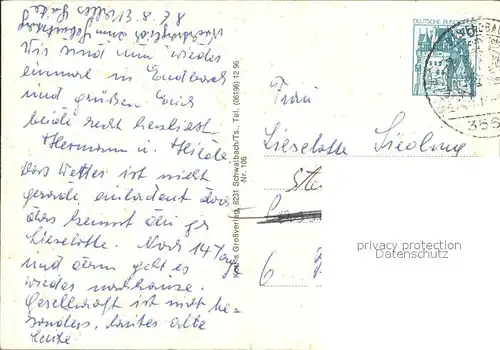 Nachträglich zum Geburtstag
8.8.13 Alles Gute
Wir sind nun wieder
einmal in Endbach
und grüßen Euch
beide recht herzlich.
Hermann u. Hilde
Das Wetter ist nicht
gerade einladend doch
das kennst du ja
Lieselotte. Noch 14 Tage
und dann geht es
wieder nachhause.
Gesellschaft ist nicht be-
sonders, lauter alte
Leute
Großverlag, 6231 Schwalbach/Ts., Tel. (06196) 12 96
Nr. 106
DEUTSCHE BUNDES
355
Frau
Lieselotte Siedling
6
privacy protection
Datenschutz